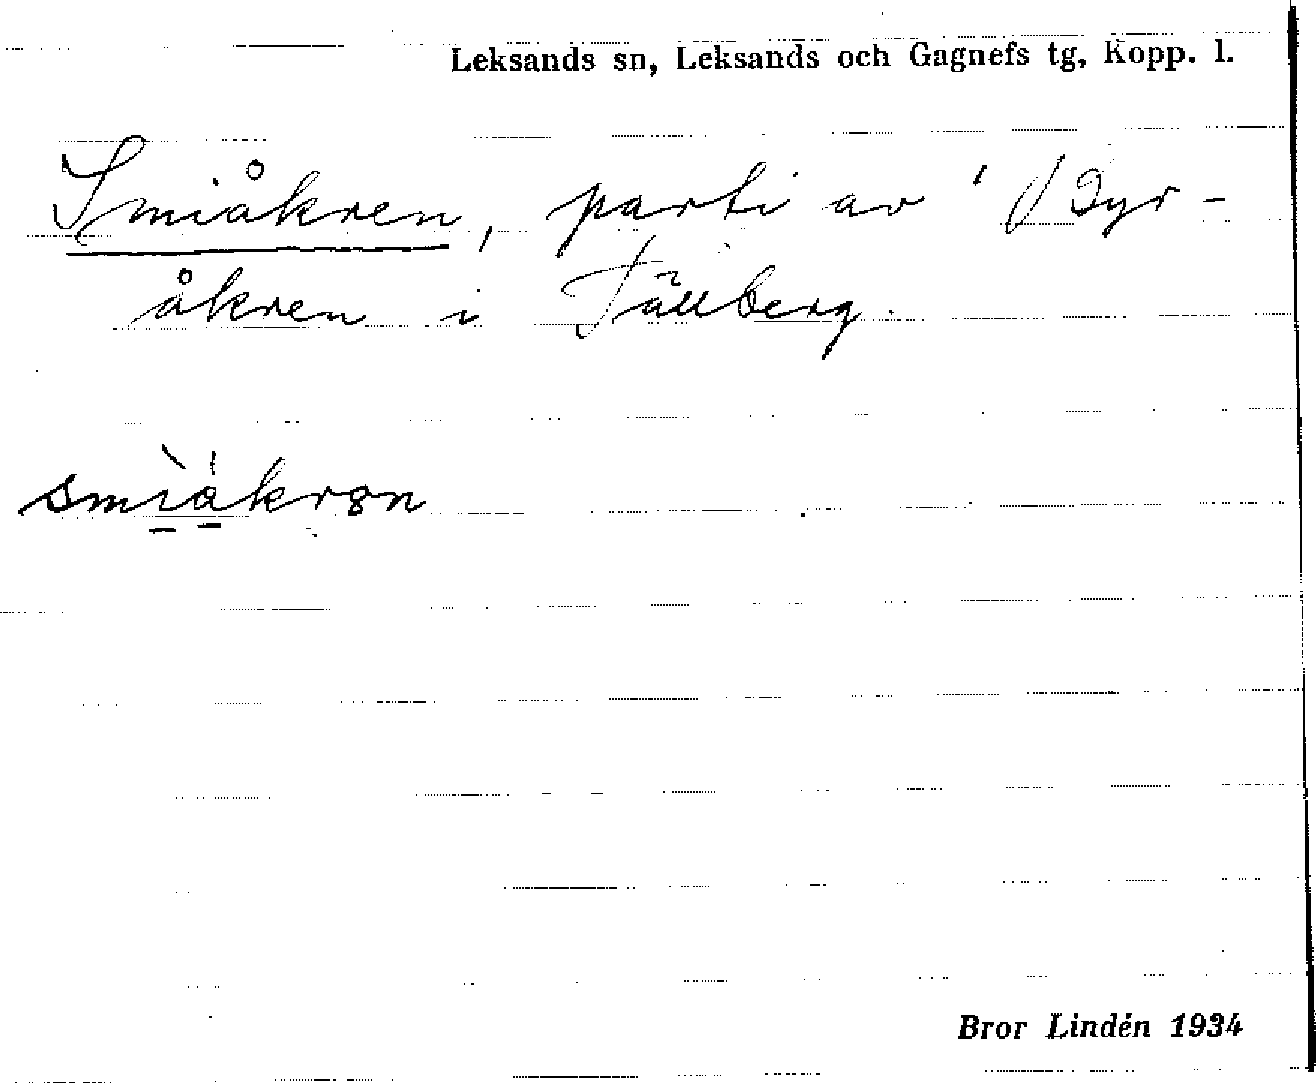 Leksands sn, Leksands och Gagnefs tg, Kopp. l.
Smiåkren, parti av ' Byr-
åkren i Tällberg.
smìåkrən
Bror Lindén 1934